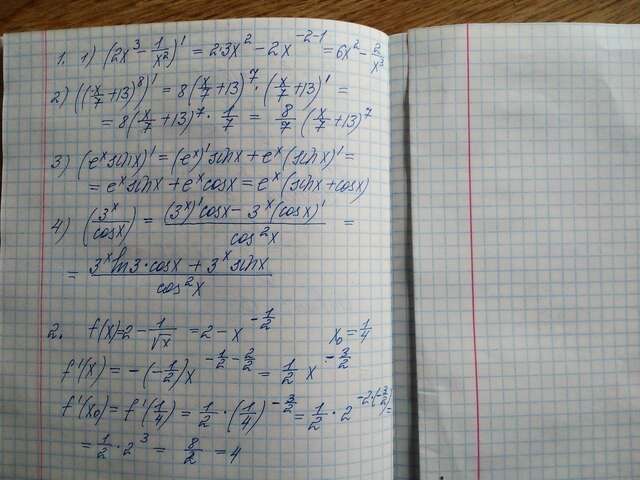 1. 1) (2x³ - 1/x²)' = 2·3x² - 2x⁻²⁻¹ = 6x² - 2/x³
2) ((x/7 + 13)⁸)' = 8(x/7 + 13)⁷ · (x/7 + 13)' =
= 8(x/7 + 13)⁷ · 1/7 = 8/7 (x/7 + 13)⁷
3) (eˣ sinx)' = (eˣ)' sinx + eˣ (sinx)' =
= eˣ sinx + eˣ cosx = eˣ (sinx + cosx)
4) (3ˣ/cosx) = ((3ˣ)' cosx - 3ˣ (cosx)')/cos²x =
= (3ˣ ln3 · cosx + 3ˣ sinx)/cos²x
2. f(x) = 2 - 1/√x = 2 - x^(-1/2) x₀ = 1/4
f'(x) = -(-1/2)x^(-1/2 - 2/2) = 1/2 x^(-3/2)
f'(x₀) = f'(1/4) = 1/2 · (1/4)^(-3/2) = 1/2 · 2^(-2·(-3/2)) =
= 1/2 · 2³ = 8/2 = 4